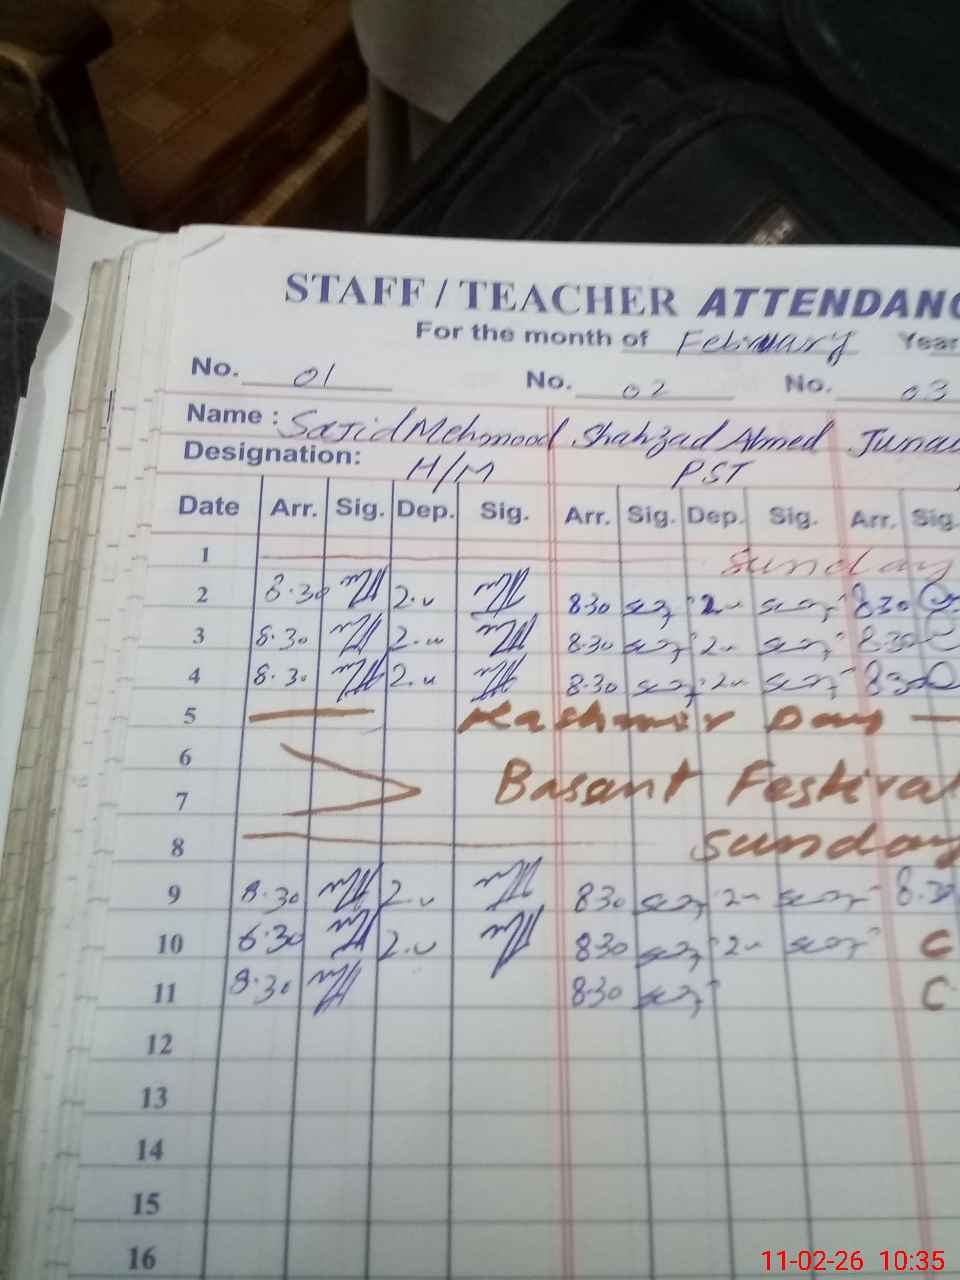 STAFF / TEACHER ATTENDANC
For the month of February Year
No. 01 No. 02 No. 03
Name : Sajid Mehmood Shahzad Ahmed Junai
Designation: H/M PST
Date Arr. Sig. Dep. Sig. Arr. Sig. Dep. Sig. Arr. Sig.
1 Sunday
2 8.30 2. 830 2 830
3 8.30 2. 8.30 2 8.30
4 8.30 2. 8.30 2 830
5 Kashmir Day
6
Basant Festival
7
8 Sunday
9 8.30 2. 830 2 8.30
10 8.30 2. 830 2 C
11 8.30 830 C
12
13
14
15
16
11-02-26 10:35